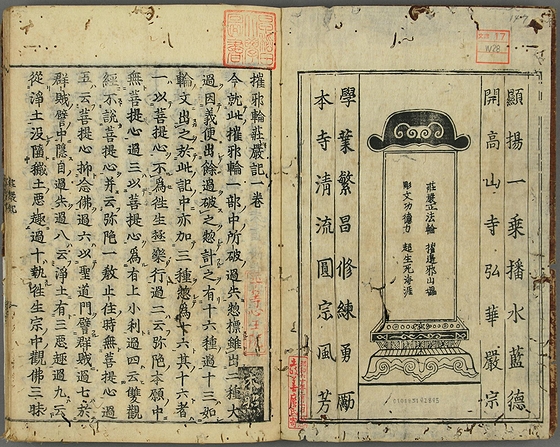 顯揚一乘播水藍德
開高山寺弘華嚴宗
莊嚴立法輪 摧邊邪山
彫文功德力 超生死海涯
學業繁昌修練勇勵
本寺清流圓宗風芳
摧邪輪莊嚴記一卷
今就此摧邪輪一部中所破過失惣標雖出一種大
過因義便出餘過破之惣計之有十六種過十三如
輪文出之於此記中亦加三種惣為十六其十六者
一以菩提心不為往生極樂行過二云弥陁本願中
無菩提心過三以菩提心爲有上小利過四云雙觀
經不説菩提心并云弥陁一教止住時無菩提心過
五云菩提心抑念佛過六以聖道門譬群賊過七於
群賊譬中隱自過失過八云淨土有三惡趣過九云
從淨土没墮穢土惡趣過十執往生宗中觀佛三昧